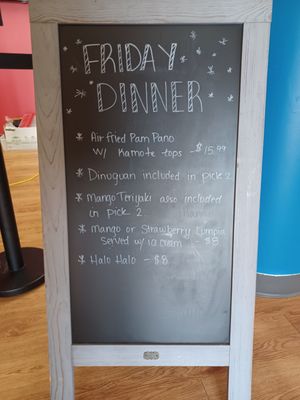 FRIDAY
DINNER
* Air fried Pam Pano
w/ Kamote tops - $15.99
* Dinuguan included in pick 2
* Mango Teriyaki also included
in pick 2
* Mango or Strawberry Lumpia
served w/ ice cream - $8
* Halo Halo - $8